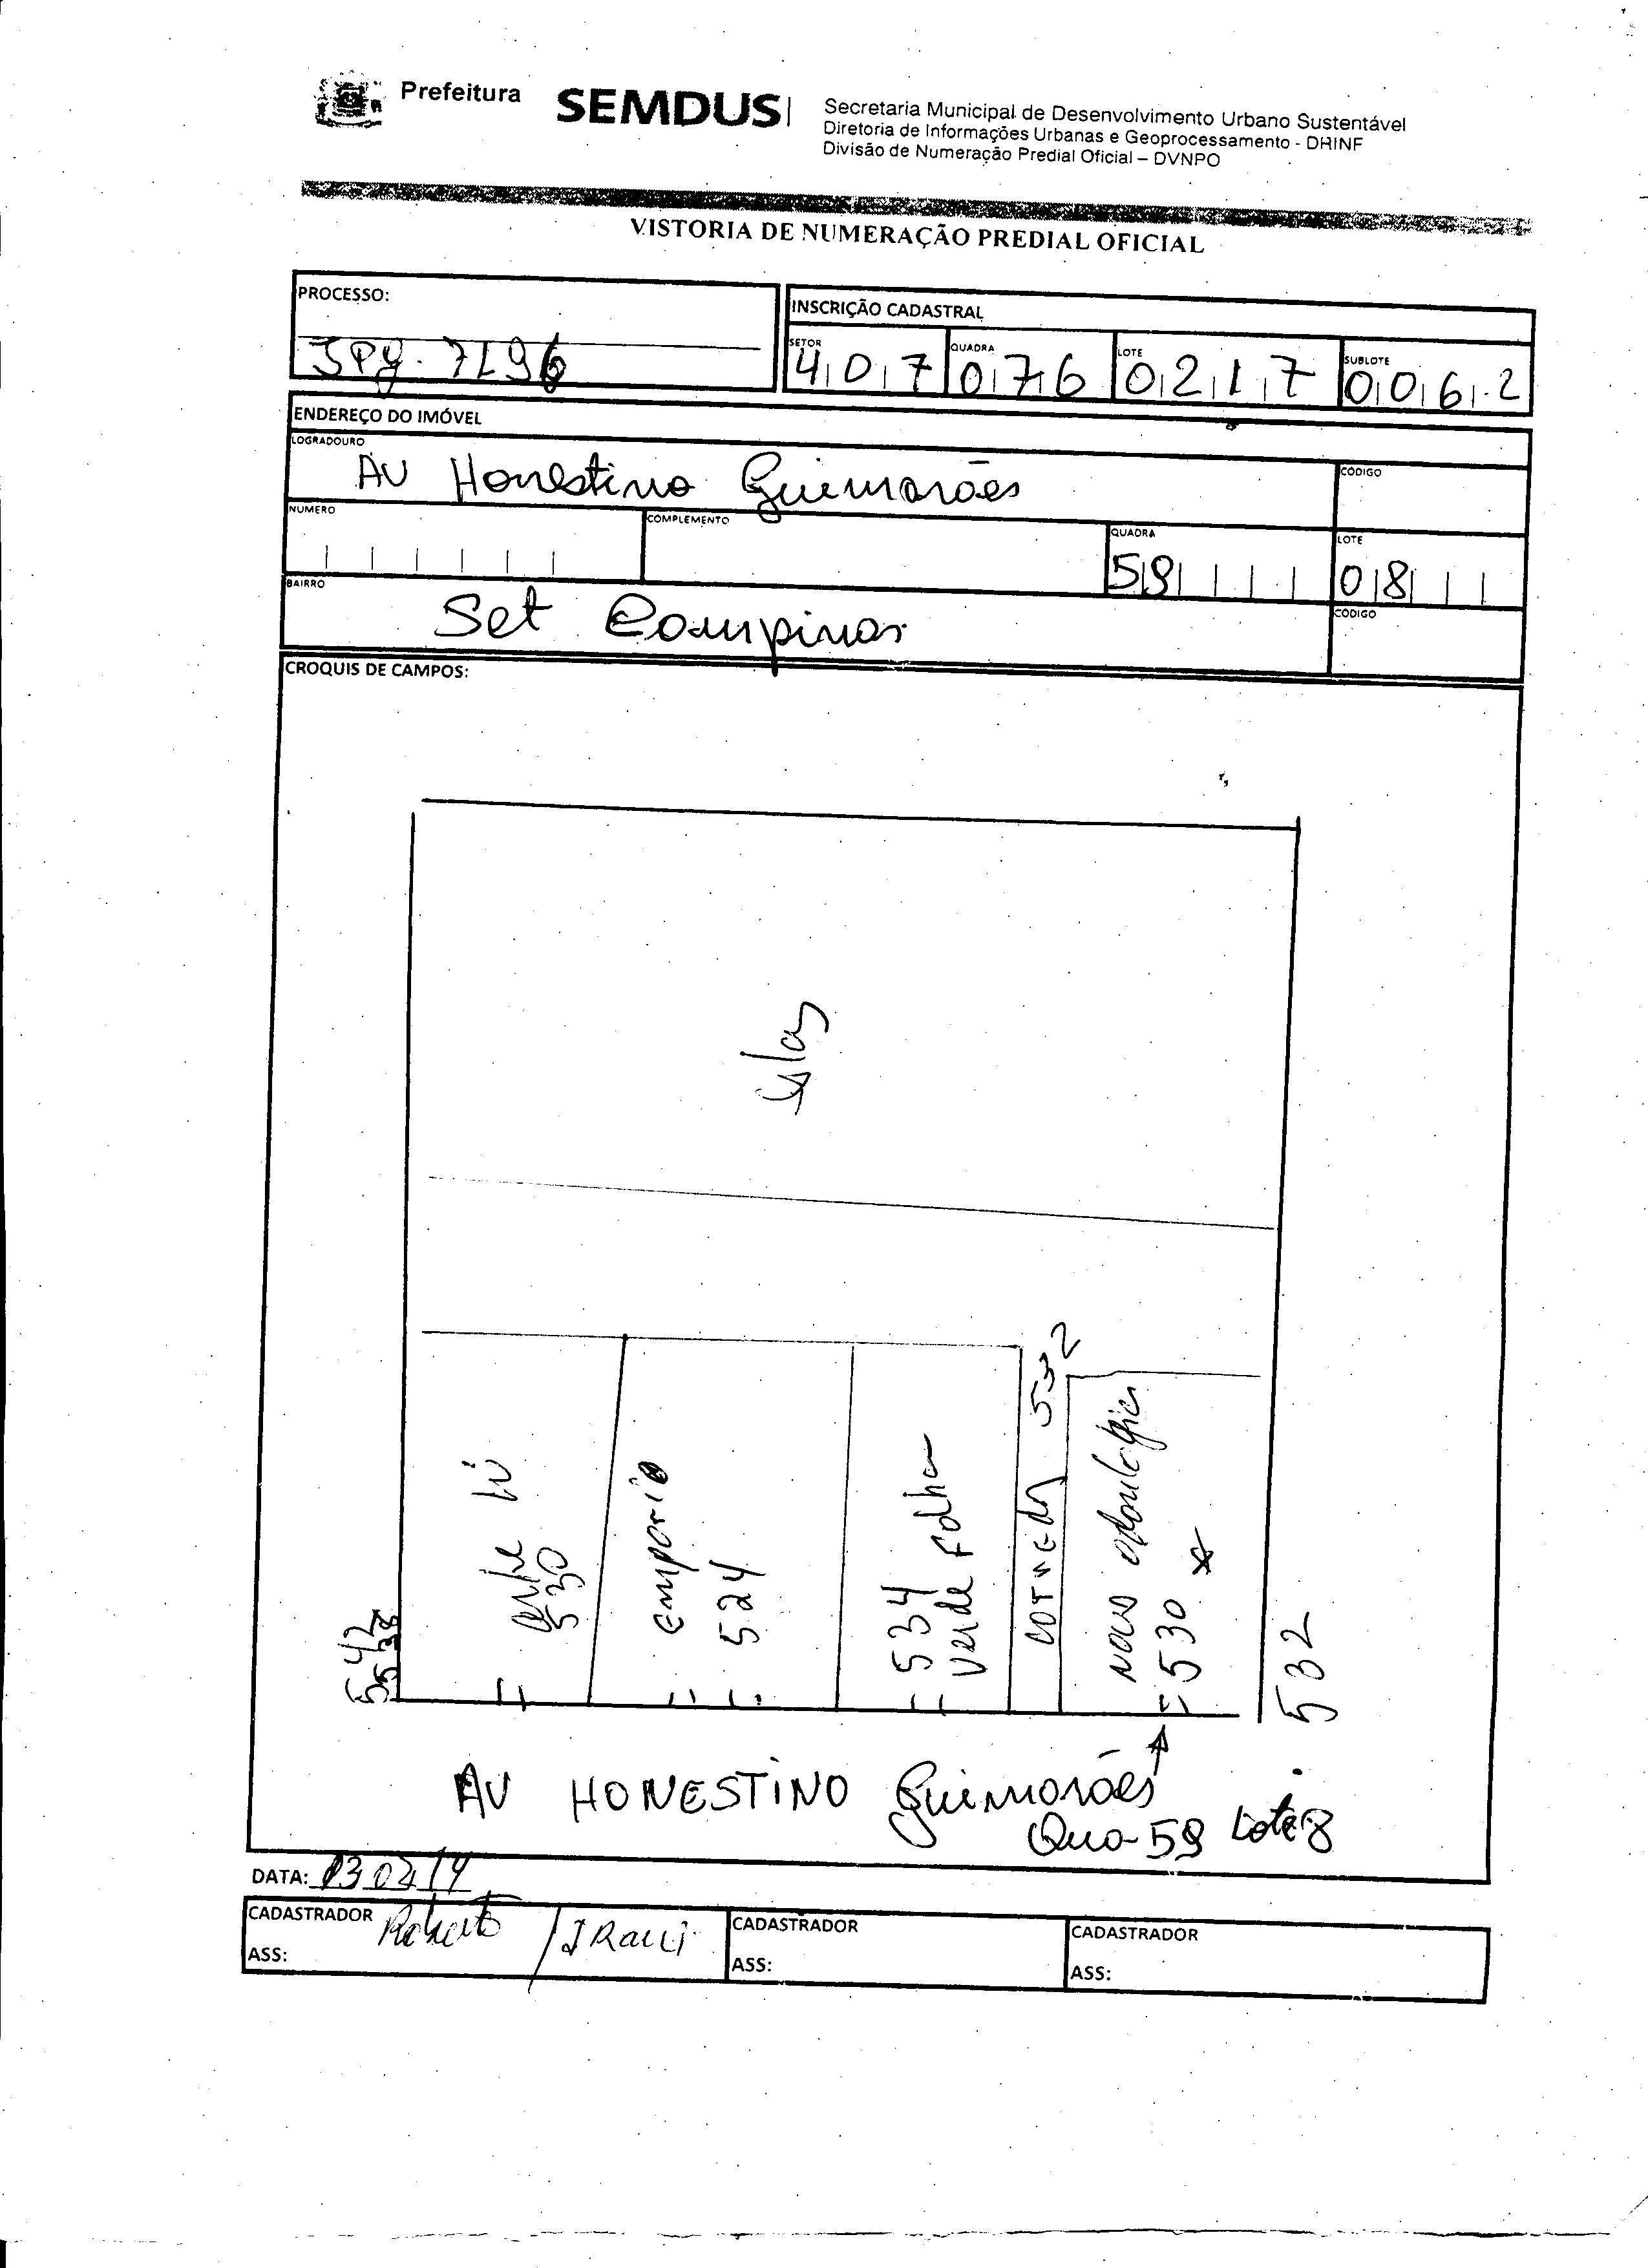 Prefeitura
SEMDUS
Secretaria Municipal de Desenvolvimento Urbano Sustentável
Diretoria de Informações Urbanas e Geoprocessamento - DRINF
Divisão de Numeração Predial Oficial – DVNPO
VISTORIA DE NUMERAÇÃO PREDIAL OFICIAL
PROCESSO:
7196
INSCRIÇÃO CADASTRAL
SETOR QUADRA LOTE SUBLOTE
407 076 0217 0062
ENDEREÇO DO IMÓVEL
LOGRADOURO CÓDIGO
AV Honestino Guimarães
NUMERO COMPLEMENTO QUADRA LOTE
59 08
BAIRRO CÓDIGO
Set Campinas
CROQUIS DE CAMPOS:
530
Emporio
524
534
Verde Folha
532
530
542
538
532
AV HONESTINO Guimarães
Qua-59 Lote 8
DATA: 130214
CADASTRADOR Roberto
ASS:
CADASTRADOR
ASS:
CADASTRADOR
ASS: